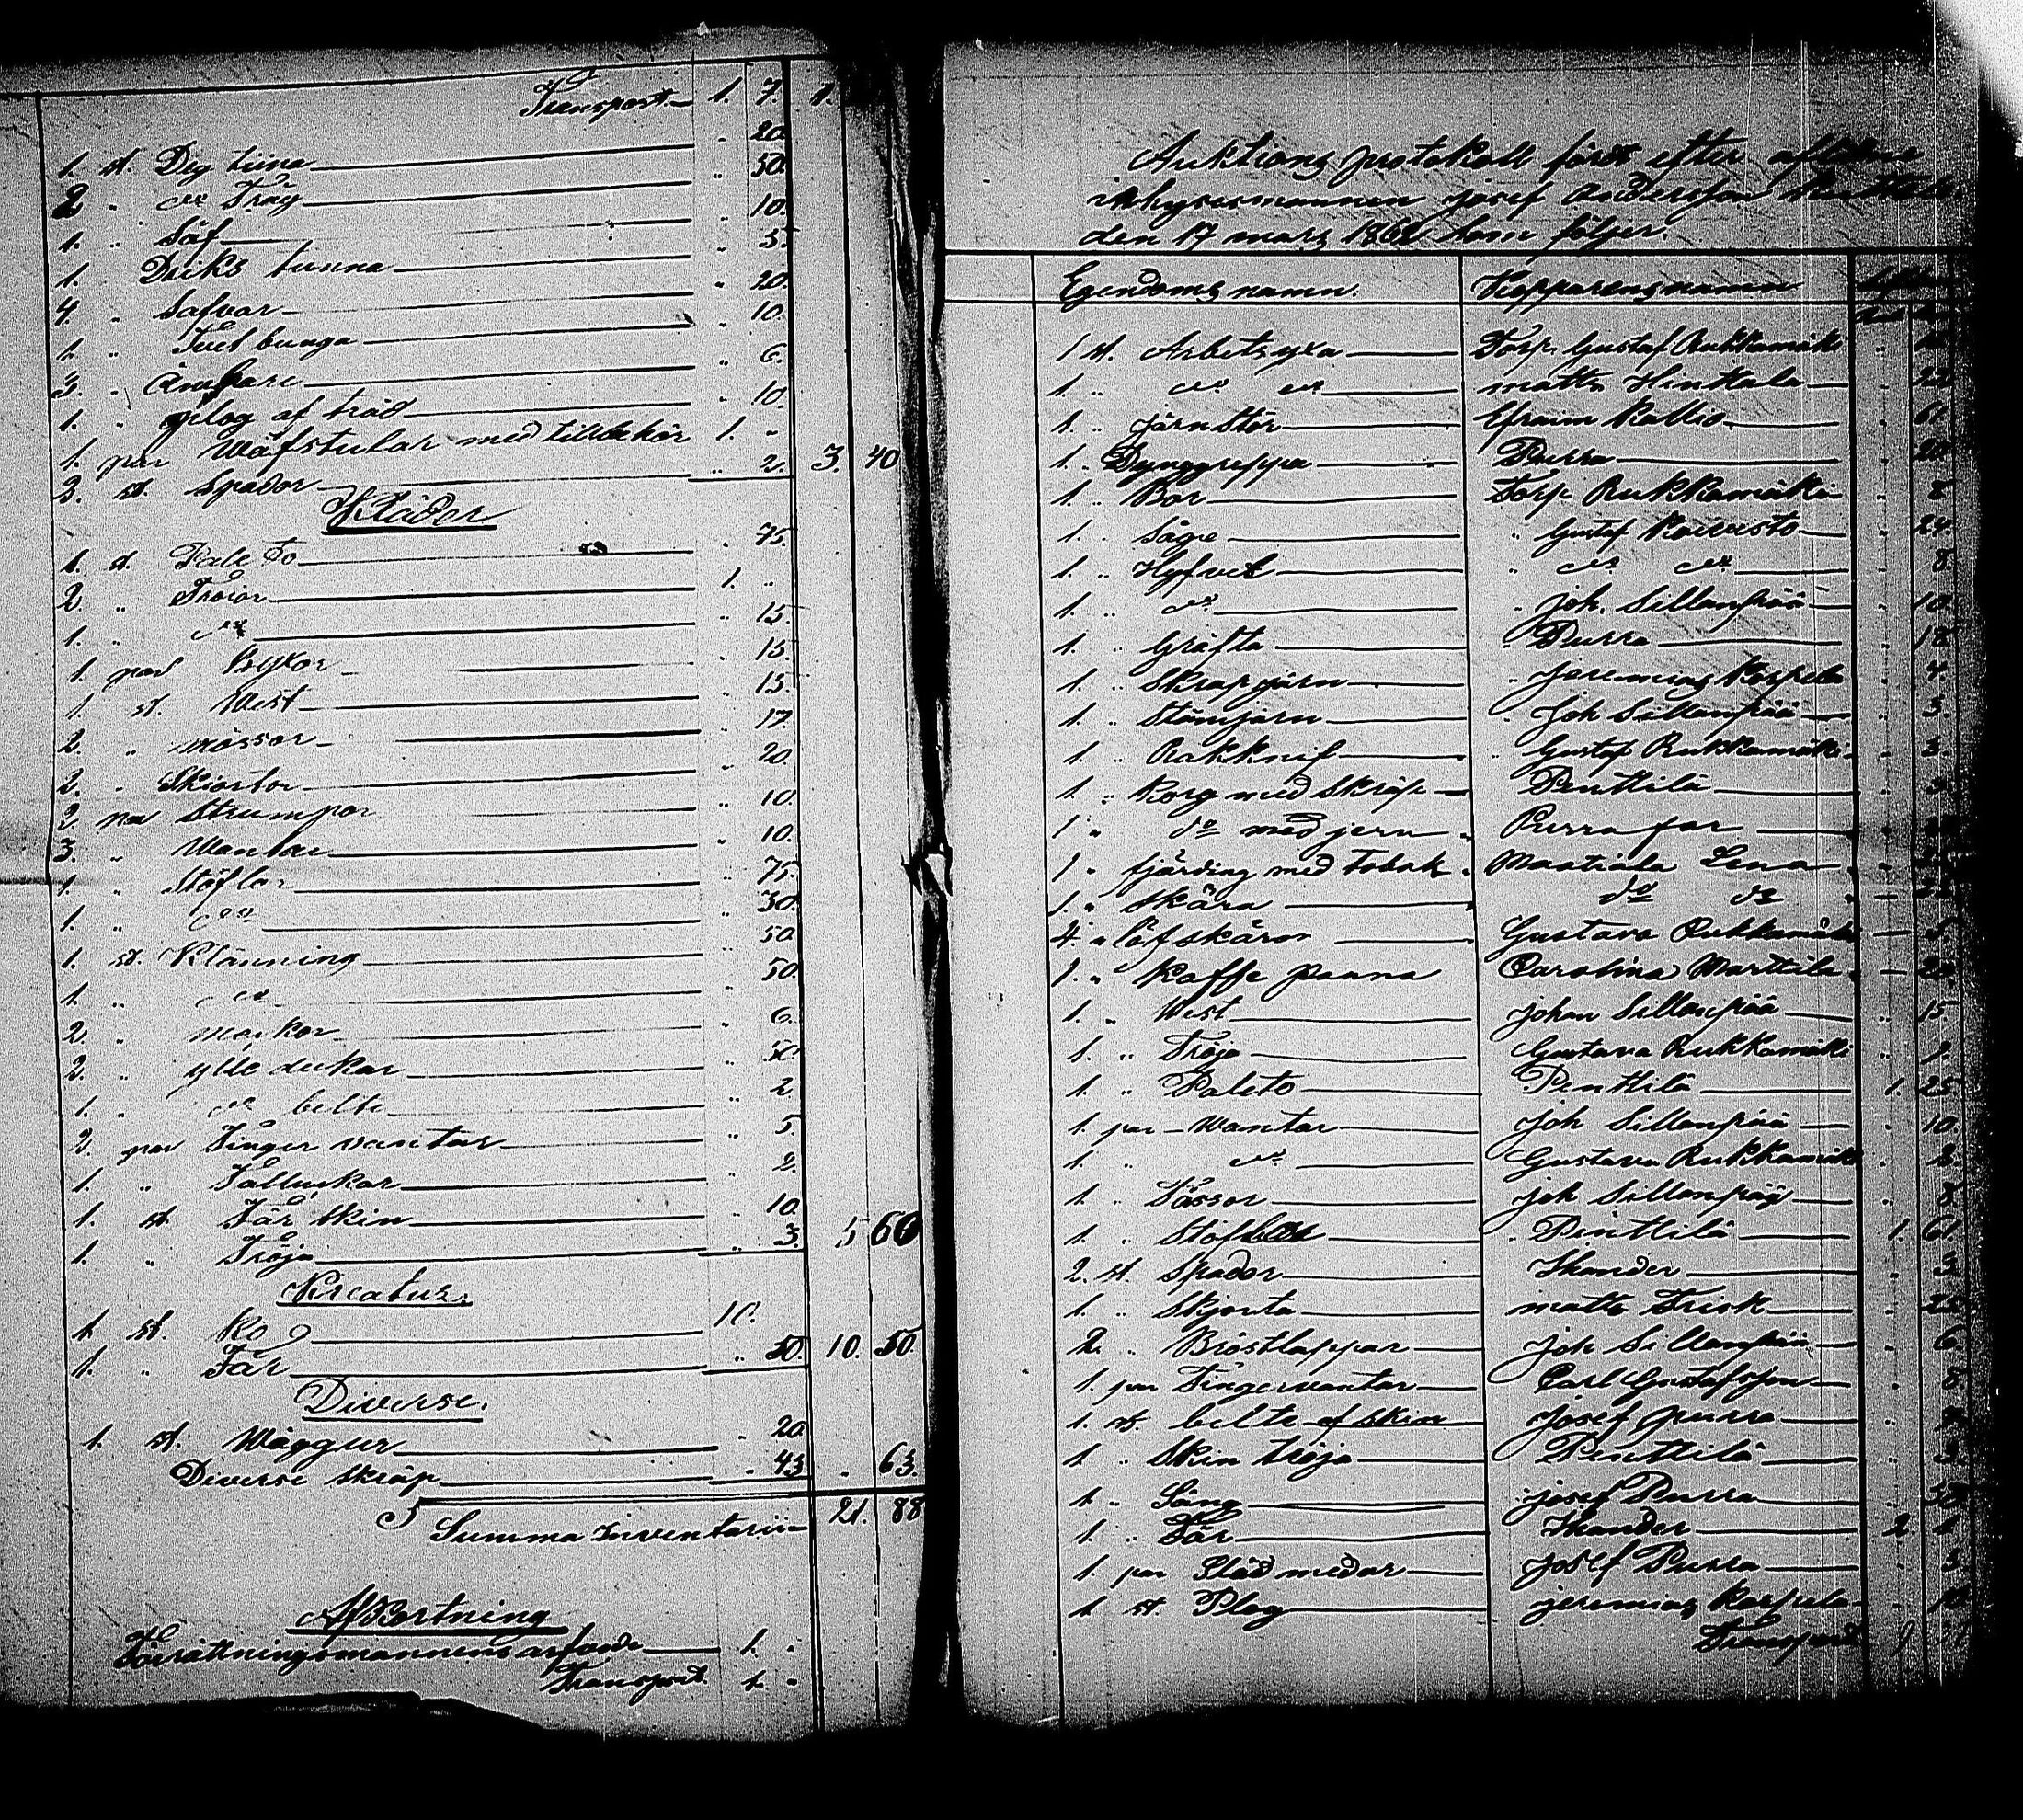 Transport 1. 7. 1.
1. st. Deg tiina " 20.
2 " do Tråg " 50.
1. " Säf " 10.
1. Driks tunna " 5.
4. " Safvar " 20.
1. " bunga " 10.
3. " Ämbare " 6.
1. " plog af träd " 10.
1. par Wäfstolar med tillbehör 1. "
3. st. Spador " 2. 3. 40
Kläder
1. st. Paleto " 75.
2. " Tröior 1. "
1. " do " 15.
1. par Byxor " 15.
1 st. West " 15.
2. " mössor " 17.
2. " Skiortor " 20.
2. par Strumpor " 10.
3. " Wantar " 10.
1. " Stöflar " 75.
1. " do " 30.
1. st. Klänning " 50
1. " do " 50.
2. " " 6.
2. " ylle dukar " 50.
1. " do belte " 2.
2. par Finger vantar " 5.
1. " " 2.
1. st. Får skin " 10.
1. " Tröja " 3. 5 60
Kreatur.
1. st. Ko 10.
1. " Får " 50. 10. 50.
Diverse.
1. st. Wäggur " 20
Diverse skräp " 43 " 63.
Summa Inventarii 21. 88
Afkortning
Förrättningsmannens arfvode 1. "
Transport. 1. "
Auktions protokoll fördt efter aflidne
inhysesmannen Josef Andersson
den 17 mars 186 som följer.
Egendoms namn. Kopparens namn
1 st. Arbets yxa Torp. Gustaf Rukkamäki
1. " do do matts Hinttala 22
1. " Järn Stör Efraim Kallio 61
1. " Dynggreppa Purra 20
1. " Bor Torp Rukkamäki 8
1. " Såge " Gustaf Koivisto 24
1. " Hyfvel " do do 8
1. " do " Joh. Sillanpää 10
1. " Gräfta " Purra 18
1. " Skrap järn " Jeremias Korpela 4
1. " Stämjarn " Joh Sillanpää 5.
1. " Rakknif Gustaf Rukkamäki 3.
1. " Korg med Skräp Penttilä
1 " do med jern Purra far
1 " fjärding med Tobak Lena
1. " Skära do do
4. " löfskäror Gustava Rukkamäki 5
1. " Kaffe panna Carolina Marttila 20
1. " West Johan Sillanpää 15
1. " Tröja Gustava Rukkamäki
1. " Paleto Penttilä 1. 25
1. par Wantar Joh Sillanpää 10
1. " do Gustava Rukkamäki
1. " Tåssor Joh Sillanpää 8
1. " Penttilä 1. 61
2. st. Spador Skander 3
1. " Skjorta matts Frisk 25
2. " Bröstlappar Joh Sillanpää 6
1. par Fingervantar Carl Gustafsson 8
1. st. belte af skin Josef Purra
1 " Skin tröja Penttilä 5.
1. " Säng Josef Purra 50
1. " Får Skander 2 1
1. par Släd medar Josef Purra 5
1. st. Plog Jeremias Korpela
Transport 9